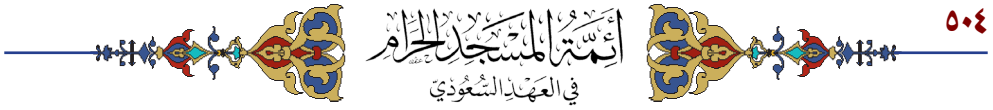 ٥٠٤
أَئِمَّةُ المَسْجِدِ الحَرَامِ
فِي العَهْدِ السُّعُودِيّ